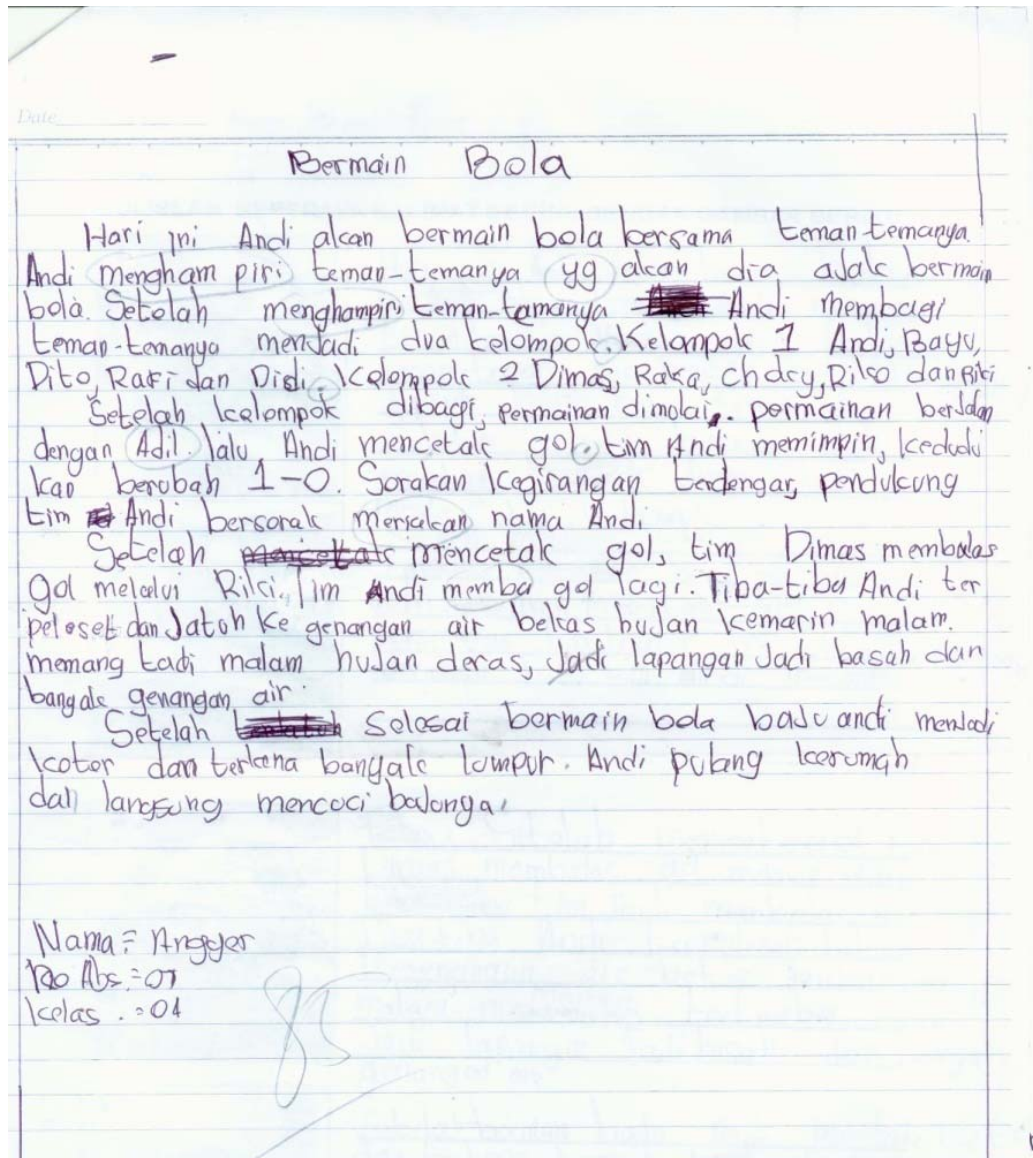 Date
Bermain Bola
Hari ini Andi akan bermain bola bersama teman-temanya.
Andi mengham piri teman-temanya yg akan dia ajak bermain
bola. Setelah menghampiri teman-temanya Andi membagi
teman-temanya menjadi dua kelompok. Kelompok 1 Andi, Bayu,
Dito, Rafi dan Didi. Kelompok 2 Dimas, Raka, Riko dan Riki
Setelah kelompok dibagi, permainan dimulai. permainan berjalan
dengan Adil. lalu Andi mencetak gol. tim Andi memimpin, kedudu
kan berubah 1-0. Sorakan kegirangan terdengar, pendukung
tim Andi bersorak nama Andi.
Setelah mencetak gol, tim Dimas membalas
gol melalui Riki. Tim Andi memba gol lagi. Tiba-tiba Andi ter
peleset dan Jatuh ke genangan air bekas hujan kemarin malam.
memang tadi malam hujan deras, Jadi lapangan Jadi basah dan
bangak genangan air.
Setelah selesai bermain bola baju andi menjadi
kotor dan terkena banyak lumpur. Andi pulang kerumah
dan langsung mencuci bajunya.
Nama = Angger
No Abs. = 07
kelas . = 04
85